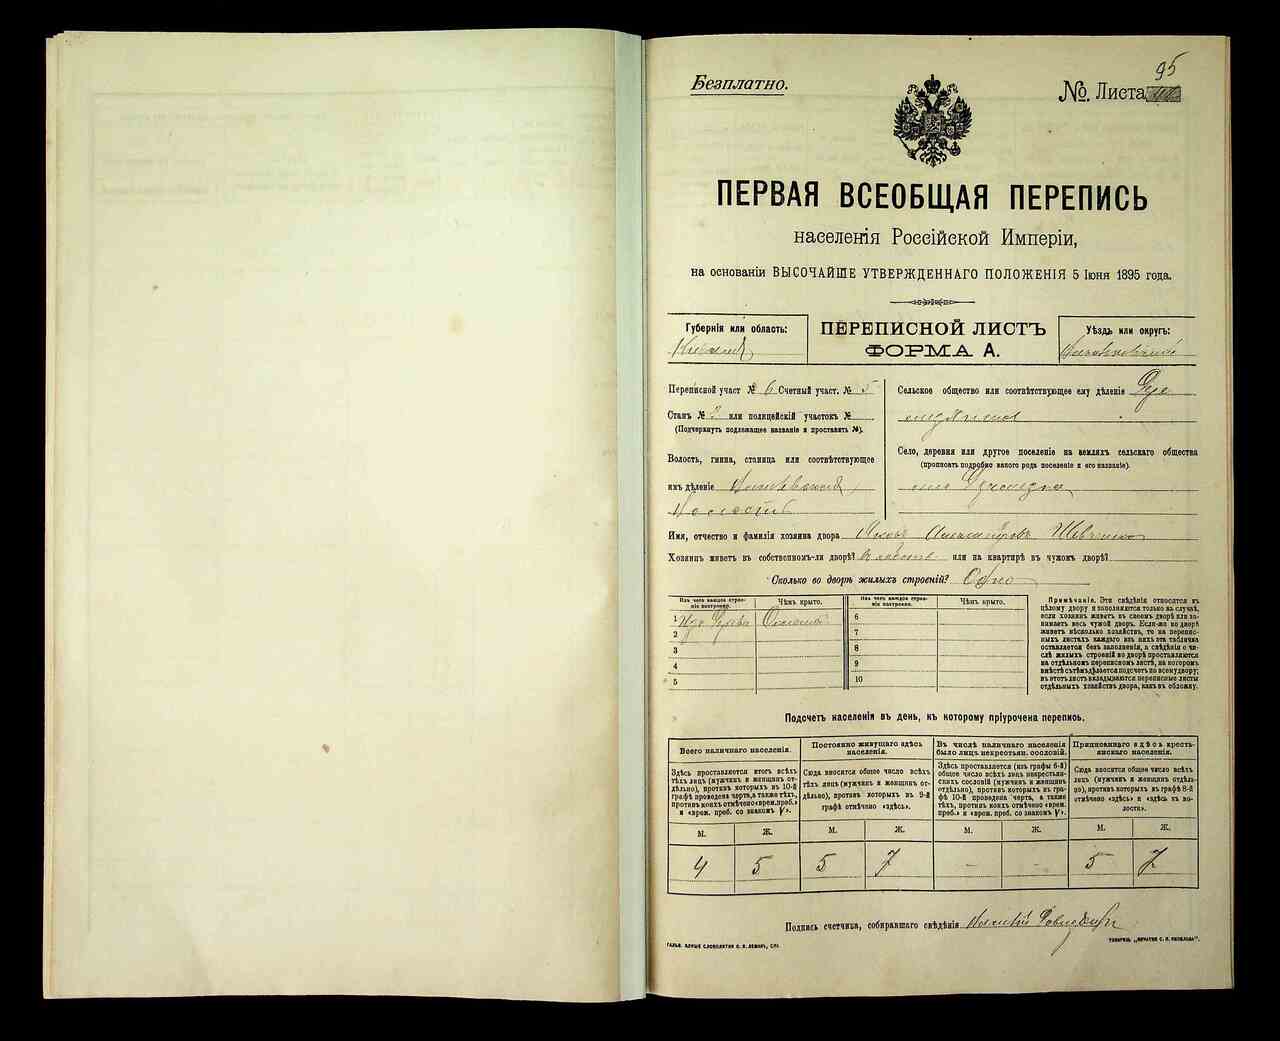 Безплатно.
95
№ Листа
ПЕРВАЯ ВСЕОБЩАЯ ПЕРЕПИСЬ
населенія Россійской Имперіи,
на основаніи ВЫСОЧАЙШЕ УТВЕРЖДЕННАГО ПОЛОЖЕНІЯ 5 Іюня 1895 года.
Губернія или область:
ПЕРЕПИСНОЙ ЛИСТЪ
ФОРМА А.
Уѣздъ или округъ:
Переписной участ № 6 Счетный участ. № 5
Станъ № 3 или полицейскій участокъ №
(Подчеркнуть подлежащее названіе и проставить №).
Волость, гмина, станица или соотвѣтствующее
имъ дѣленіе
Волость
Сельское общество или соотвѣтствующее ему дѣленіе
Село, деревня или другое поселеніе на земляхъ сельскаго общества
(прописать подробно какого рода поселеніе и его названіе).
село
Имя, отчество и фамилія хозяина двора Яковъ Александровъ Шевченко
Хозяинъ живетъ въ собственномъ-ли дворѣ? или на квартирѣ въ чужомъ дворѣ?
Сколько во дворѣ жилыхъ строеній? Одно
Изъ чего каждое строе-
ніе построено.
Чѣмъ крыто.
Изъ чего каждое строе-
ніе построено.
Чѣмъ крыто.
1 Изъ Дерева Соломой
2
3
4
5
6
7
8
9
10
Примѣчаніе. Эти свѣдѣнія относятся къ
цѣлому двору и заполняются только въ случаѣ,
если хозяинъ живетъ въ своемъ дворѣ или за-
нимаетъ весь чужой дворъ. Если-же во дворѣ
живетъ нѣсколько хозяйствъ, то на перепис-
ныхъ листахъ каждаго изъ нихъ эта табличка
оставляется безъ заполненія, а свѣдѣнія о чи-
слѣ жилыхъ строеній во дворѣ проставляются
на отдѣльномъ переписномъ листѣ, на которомъ
вмѣстѣ съ тѣмъ дѣлается подсчетъ по всему двору;
въ этотъ листъ вкладываются переписные листы
отдѣльныхъ хозяйствъ двора, какъ въ обложку.
Подсчетъ населенія въ день, къ которому пріурочена перепись.
Всего наличнаго населенія.
Здѣсь проставляется итогъ всѣхъ
тѣхъ лицъ (мужчинъ и женщинъ от-
дѣльно), противъ которыхъ въ 10-й
графѣ проведена черта, а также тѣхъ,
противъ коихъ отмѣчено «врем. преб.»
и «врем. преб. со знакомъ V».
Постоянно живущаго здѣсь
населенія.
Сюда вносится общее число всѣхъ
тѣхъ лицъ (мужчинъ и женщинъ от-
дѣльно), противъ которыхъ въ 9-й
графѣ отмѣчено «здѣсь».
Въ числѣ наличнаго населенія
было лицъ некрестьян. сословій.
Здѣсь проставляется (изъ графы 6-й)
общее число всѣхъ лицъ некрестьян-
скихъ сословій (мужчинъ и женщинъ
отдѣльно), противъ которыхъ въ гра-
фѣ 10-й проведена черта, а также
тѣхъ, противъ коихъ отмѣчено «врем.
преб.» и «врем. преб. со знакомъ V».
Приписаннаго здѣсь кресть-
янскаго населенія.
Сюда вносится общее число всѣхъ
лицъ (мужчинъ и женщинъ отдѣль-
но), противъ которыхъ въ графѣ 8-й
отмѣчено «здѣсь» и «здѣсь въ во-
лости».
М. Ж. М. Ж. М. Ж. М. Ж.
4 5 5 7 - - 5 7
Подпись счетчика, собиравшаго свѣдѣнія